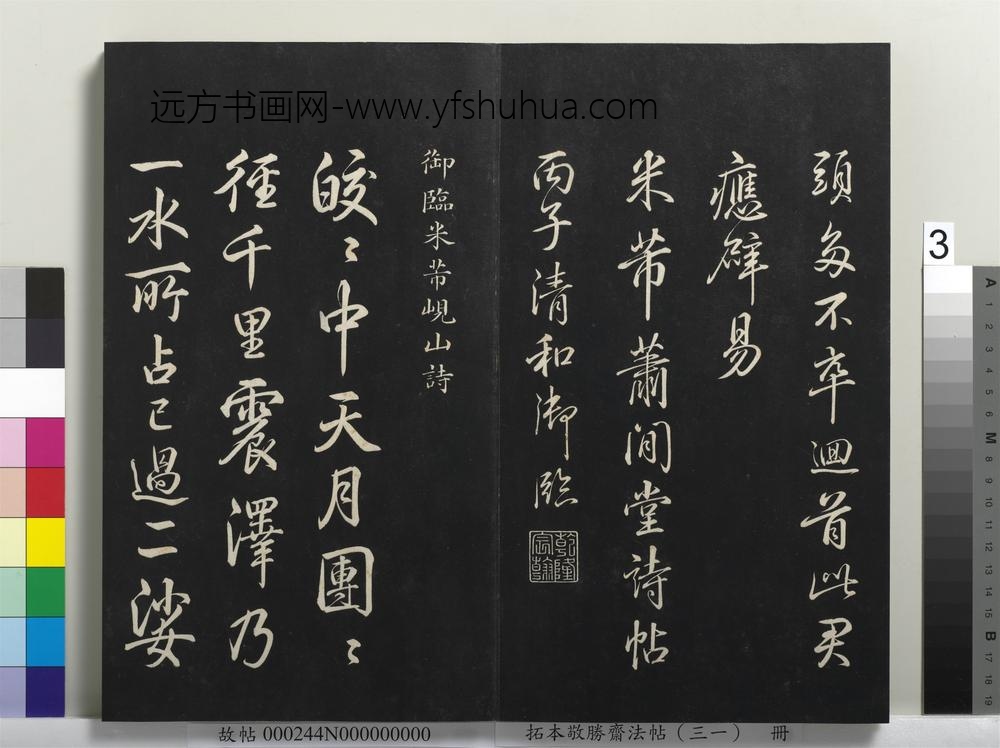 远方书画网-www.yfshuhua.com
頭多不卒迴首此君
應辟易
米芾蕭閒堂詩帖
丙子清和御臨
乾隆宸翰
御臨米芾峴山詩
皎〻中天月團〻
徑千里震澤乃
一水所占已過二娑
3
A
1
2
3
4
5
6
M
8
9
10
11
12
13
14
15
B
17
18
19
故帖 000244N000000000
拓本敬勝齋法帖（三一） 冊